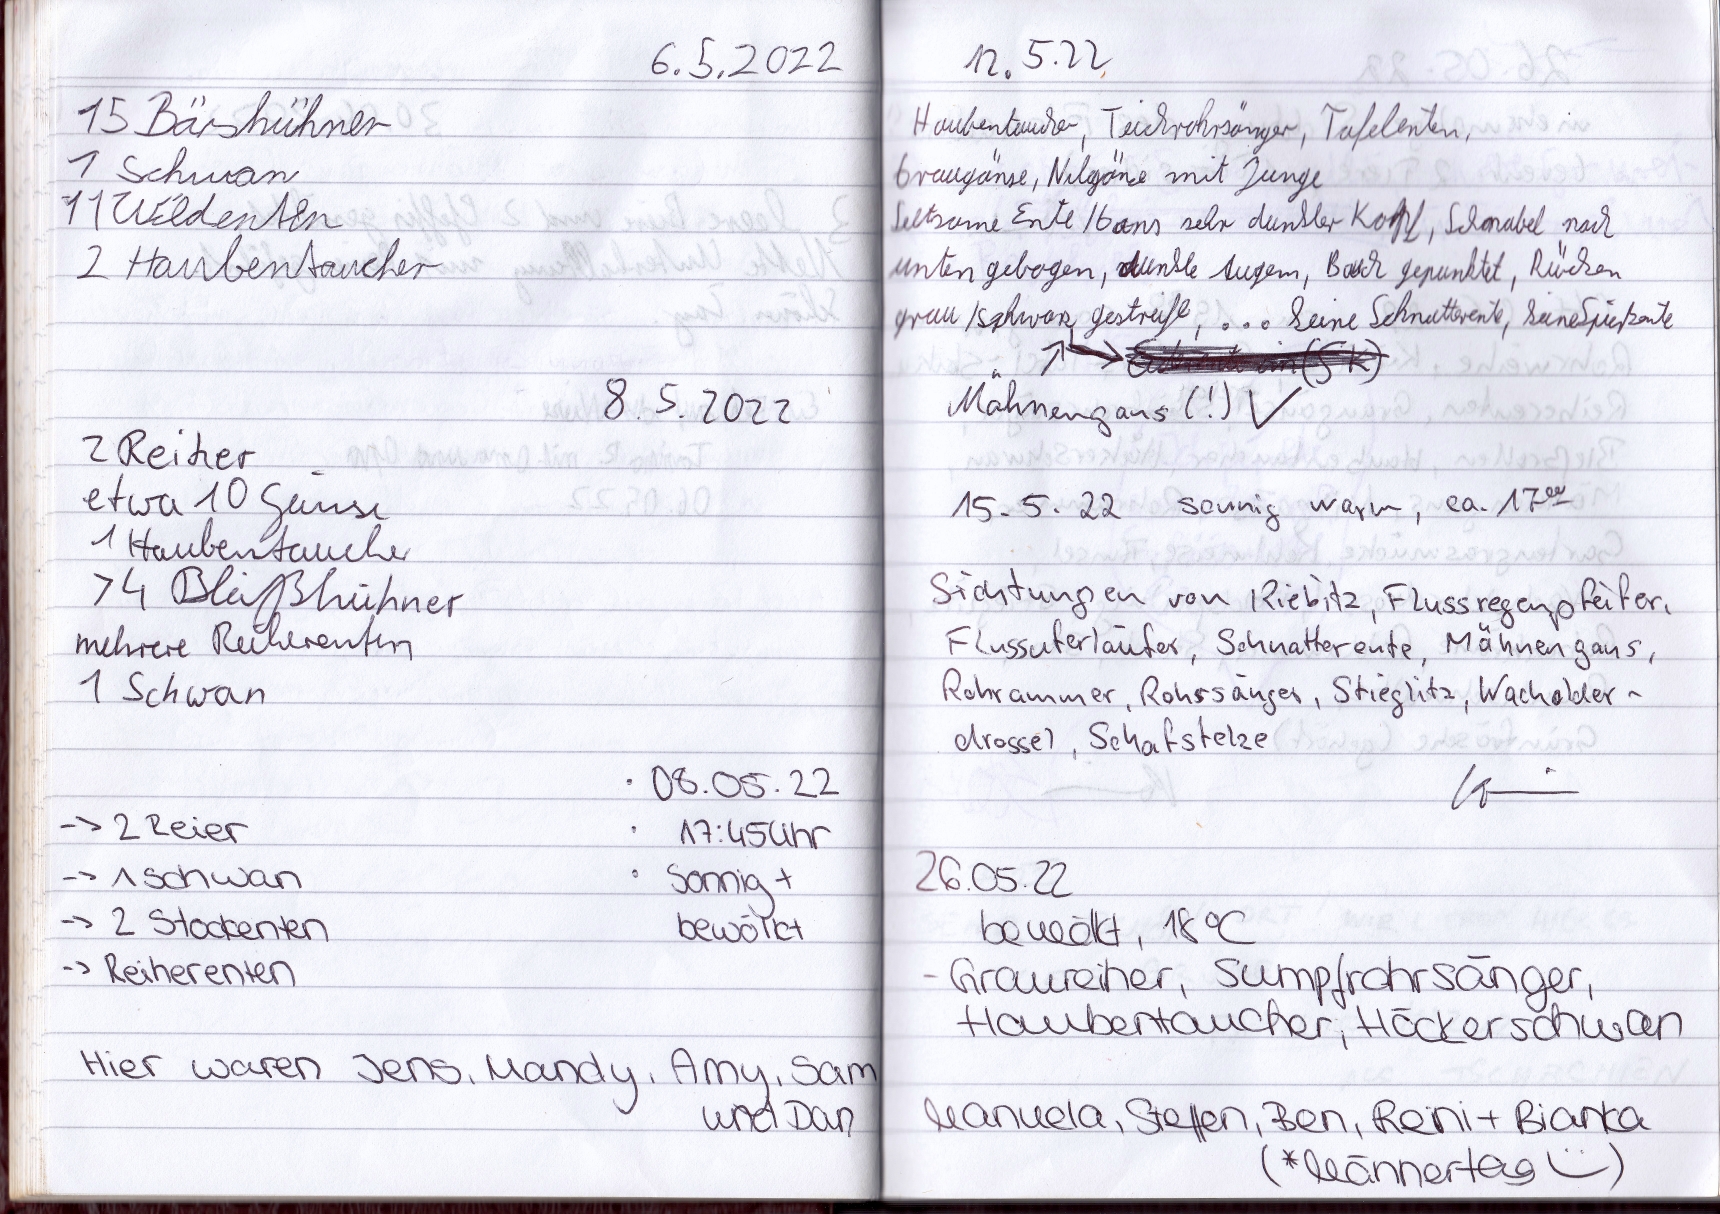 6.5.2022
15 Bärshühner
1 Schwan
11 Wildenten
2 Haubentaucher
8.5.2022
2 Reiher
etwa 10 Gänse
1 Haubentaucher
>4 Bläßhühner
mehrere Reiherenten
1 Schwan
· 08.05.22
-> 2 Reier
· 17:45 Uhr
-> 1 schwan
· Sonnig +
-> 2 Stockenten
bewölkt
-> Reiherenten
Hier waren Jens, Mandy, Amy, Sam
und Dan
12.5.22
Haubentaucher, Teichrohrsänger, Tafelenten,
Graugänse, Nilgänse mit Junge
Seltsame Ente/Gans sehr dunkler Kopf, Schnabel nach
unten gebogen, dunkle Augen, Bauch gepunktet, Rücken
grau/schwarz gestreift, ... keine Schnatterente, keine Spießente
Mähnengans (!) ✓
15.5.22 sonnig warm, ca. 17⁰⁰
Sichtungen von Kiebitz, Flussregenpfeifer,
Flussuferläufer, Schnatterente, Mähnengans,
Rohrammer, Rohrsänger, Stieglitz, Wacholder-
drossel, Schafstelze
26.05.22
bewölkt, 18°C
- Graureiher, Sumpfrohrsänger,
Haubentaucher, Höckerschwan
Manuela, Steffen, Ben, Reini + Bianka
(*Männertag ☺)